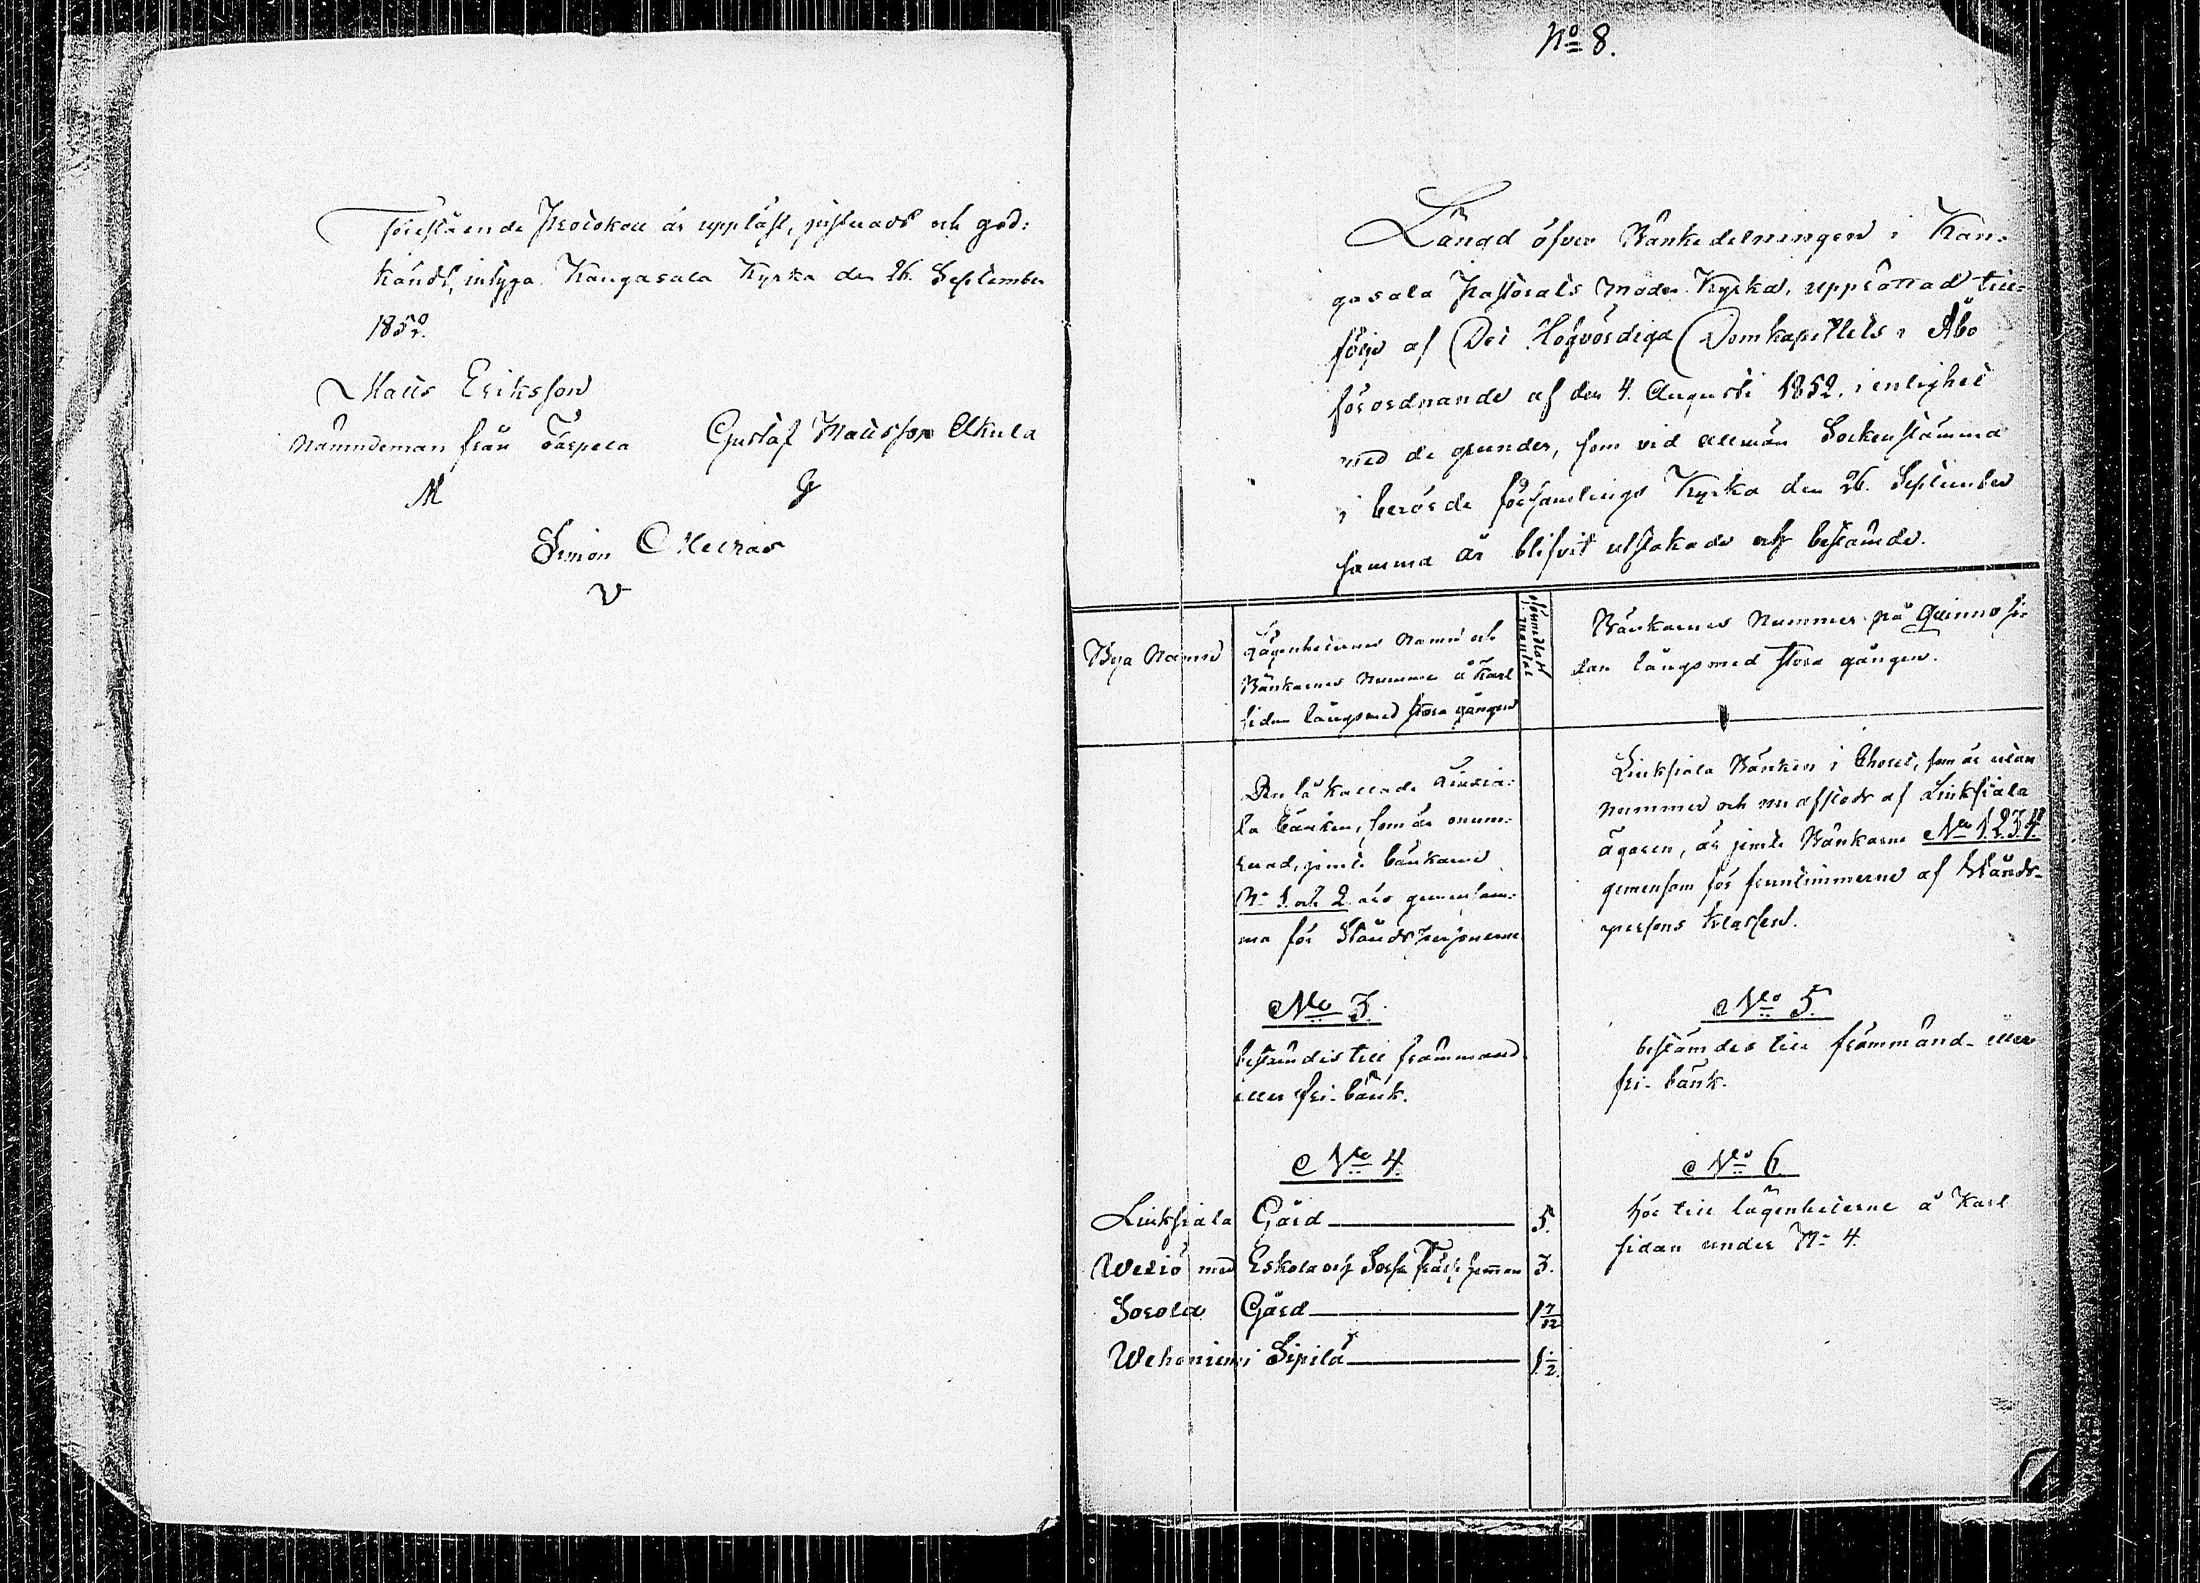 Förestående Protokoll är uppläst, justerad och god-
kändt, intyga. Kangasala Kyrka den 26. September
1852.
Matts Eriksson
Nämndeman från Tarpela
M
Gustaf Mattsson Alkula
G
Simon Ollikas
V
No 8.
Längd öfver Bänkedelningen i Kan-
gasala Pastorats Moder Kyrka, upprättad till-
följe af Det Högvördiga Domkapitlets i Åbo
förordnande af den 4. Augusti 1852, i enlighet
med de grunder, som vid allmän Sockenstämma
i berörde församlings Kyrka den 26. September
samma år blifvit utstakade och bestämde.
Bya Namn
Lägenheternes Namn och
Bänkarnes Nummer å Karl
sidan längsmed stora gången
Oförmedlat
mantal
Bänkarnes Nummer på Qvinno si-
dan längsmed stora gången.
Den så kallade Liuksia-
la bänken, som är onum-
rerad, jemte bänkarne
No 1. och 2. äro gemensam-
ma för Ståndspersonerne
Liuksiala Bänken i Choret, som är utan
nummer och nu afstods af Liuksiala
ägaren, är jemte Bänkarne No 1.2.3.4.
gemensam för fruntimmerne af Stånds-
persons klassen.
No 3.
bestämdes till främmand
eller fri-bänk.
No 5.
bestämdes till främmand- eller
fri-bänk.
No 4.
Liuksiala Gård 5.
Wesiö med Eskola och Sorsa Frälse hemman 3.
Sorola Gård 1 7/12
Wehoniemi Sipilä 1/2.
No 6
hör till lägenheterne å Karl
sidan under No 4.